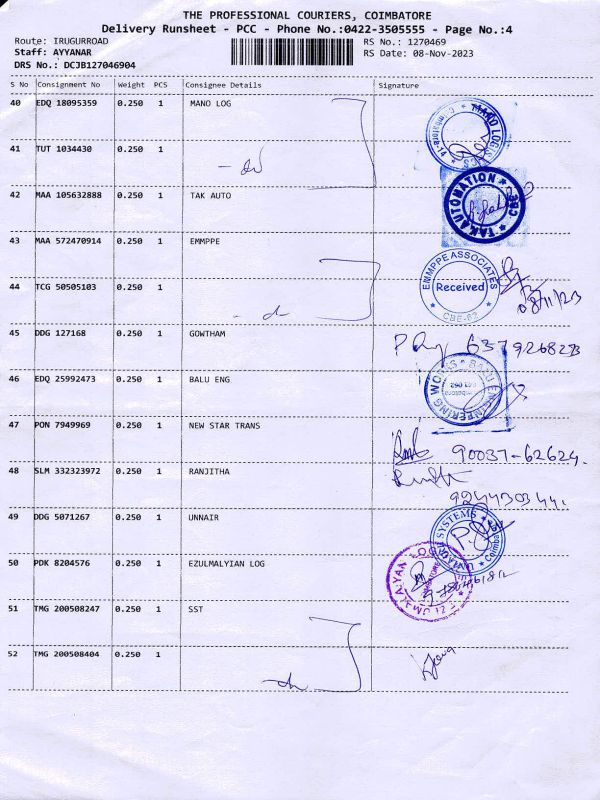 THE PROFESSIONAL COURIERS, COIMBATORE
Delivery Runsheet - PCC - Phone No.:0422-3505555 - Page No.:4
Route: IRUGURROAD RS No.: 1270469
Staff: AYYANAR RS Date: 08-Nov-2023
DRS No.: DCJB127046904
S No Consignment No Weight PCS Consignee Details Signature
40 EDQ 18095359 0.250 1 MANO LOG
41 TUT 1034430 0.250 1
42 MAA 105632888 0.250 1 TAK AUTO
TAK AUTOMATION CBE
43 MAA 572470914 0.250 1 EMMPPE
EMMPPE ASSOCIATES
Received
CBE-62
08/11/23
44 TCG 50505103 0.250 1
45 DDG 127168 0.250 1 GOWTHAM
46 EDQ 25992473 0.250 1 BALU ENG
BALU ENGINEERING WORKS
47 PON 7949969 0.250 1 NEW STAR TRANS
90037-62624.
48 SLM 332323972 0.250 1 RANJITHA
9244303441.
49 DDG 5071267 0.250 1 UNNAIR
50 PDK 8204576 0.250 1 EZULMALYIAN LOG
51 TMG 200508247 0.250 1 SST
52 TMG 200508404 0.250 1